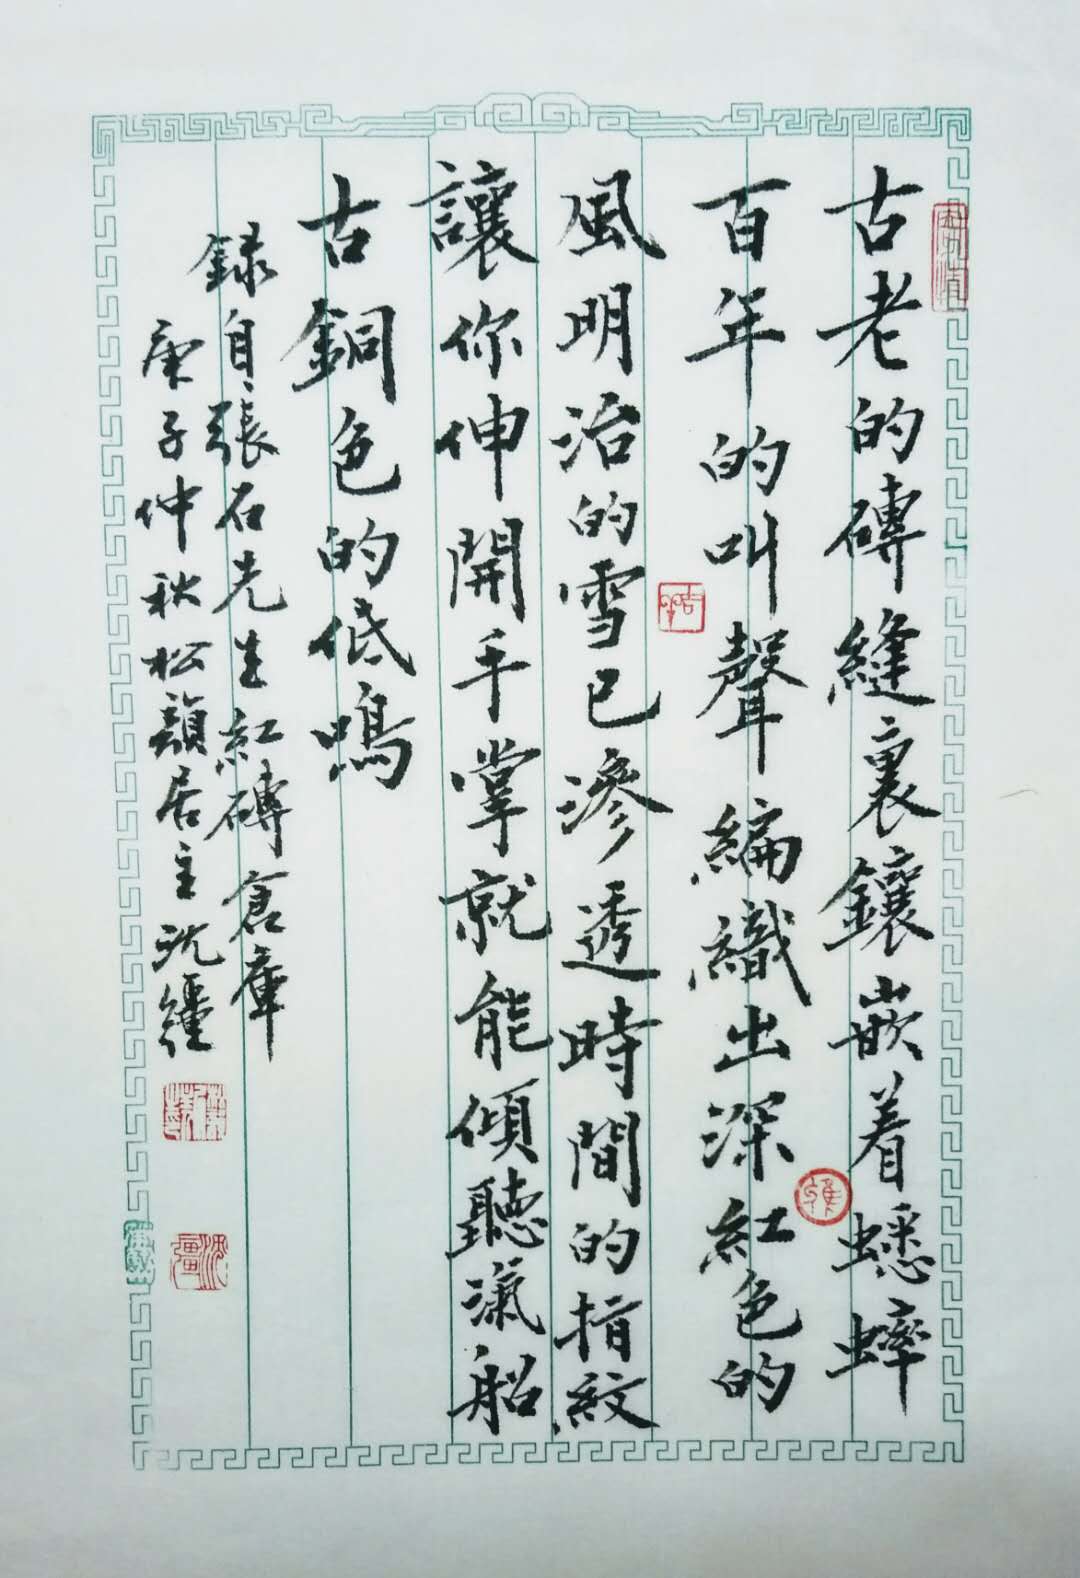 古老的磚縫裏鑲嵌着蟋蟀
百年的叫聲編織出深紅色的
風明治的雪已滲透時間的指紋
讓你伸開手掌就能傾聽滊船
古銅色的低鳴
録自張石先生紅磚倉庫
庚子仲秋松韻居主沈彊